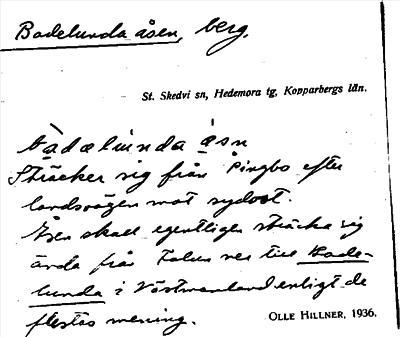 Badelunda åsen, berg.
St. Skedvi sn, Hedemora tg, Kopparbergs län.
bàdælúnda åsn
Sträcker sig från Pingbo efter
landsvägen mot sydost.
Åsen skall egentligen sträcka sig
ända från Falun ner till Bade-
lunda i Västmanland enligt de
flestas mening.
OLLE HILLNER, 1936.